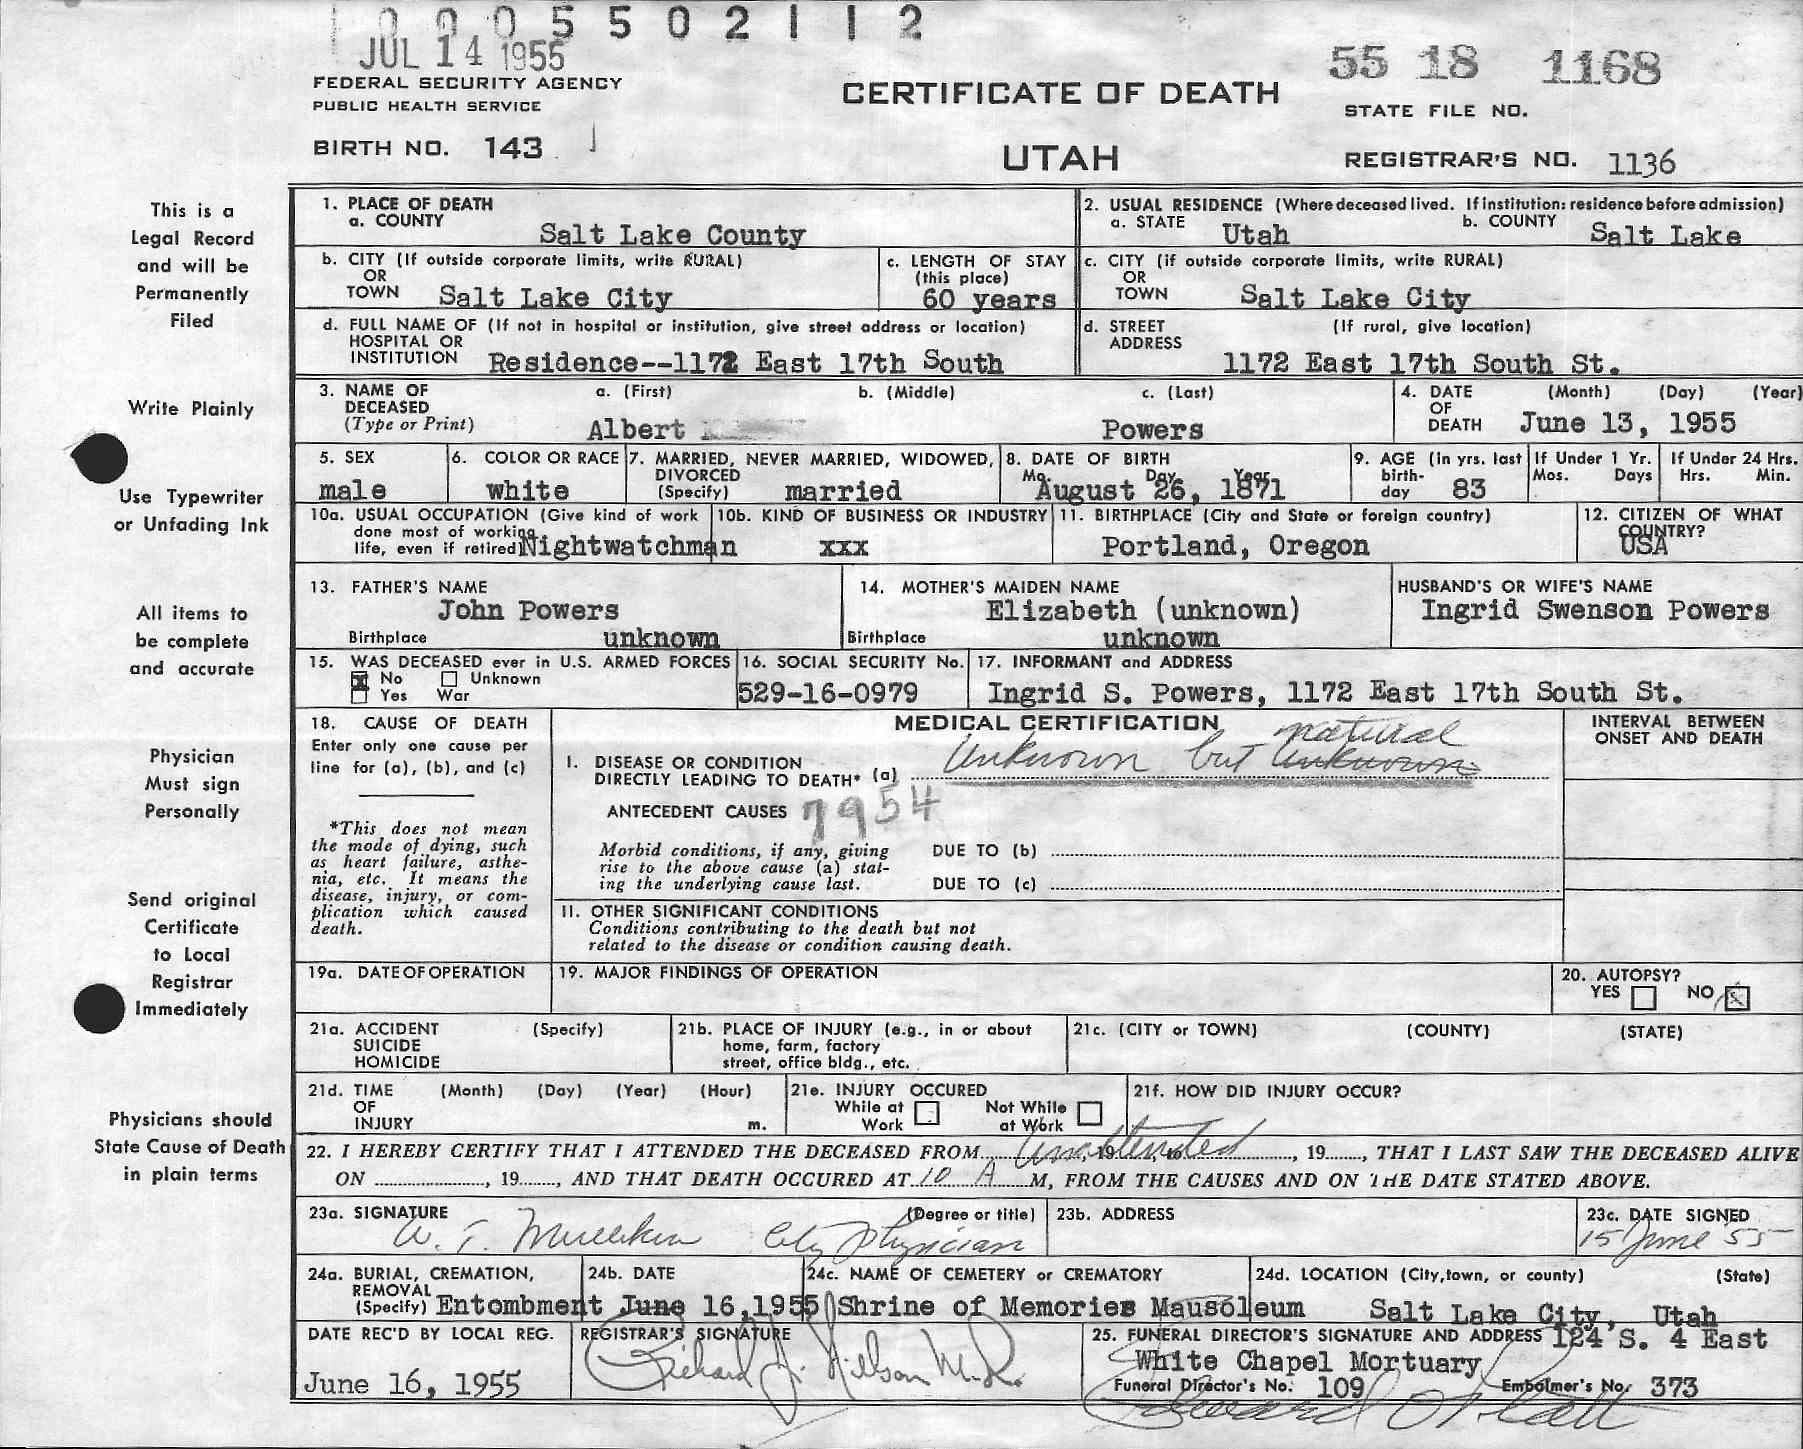 0005502112
JUL 14 1955
55 18 1168
FEDERAL SECURITY AGENCY
PUBLIC HEALTH SERVICE
CERTIFICATE OF DEATH
STATE FILE NO.
BIRTH NO. 143
UTAH
REGISTRAR'S NO. 1136
This is a
Legal Record
and will be
Permanently
Filed
Write Plainly
Use Typewriter
or Unfading Ink
All items to
be complete
and accurate
Physician
Must sign
Personally
Send original
Certificate
to Local
Registrar
Immediately
Physicians should
State Cause of Death
in plain terms
1. PLACE OF DEATH
a. COUNTY
Salt Lake County
2. USUAL RESIDENCE (Where deceased lived. If institution: residence before admission)
a. STATE Utah b. COUNTY Salt Lake
b. CITY (If outside corporate limits, write RURAL)
OR
TOWN Salt Lake City
c. LENGTH OF STAY
(this place)
60 years
c. CITY (if outside corporate limits, write RURAL)
OR
TOWN Salt Lake City
d. FULL NAME OF (If not in hospital or institution, give street address or location)
HOSPITAL OR
INSTITUTION Residence--1172 East 17th South
d. STREET (If rural, give location)
ADDRESS
1172 East 17th South St.
3. NAME OF a. (First) b. (Middle) c. (Last)
DECEASED
(Type or Print) Albert Powers
4. DATE (Month) (Day) (Year)
OF
DEATH June 13, 1955
5. SEX
male
6. COLOR OR RACE
white
7. MARRIED, NEVER MARRIED, WIDOWED,
DIVORCED
(Specify) married
8. DATE OF BIRTH
Mo. Day Year
August 26, 1871
9. AGE (In yrs. last
birth-
day 83
If Under 1 Yr.
Mos. Days
If Under 24 Hrs.
Hrs. Min.
10a. USUAL OCCUPATION (Give kind of work
done most of working
life, even if retired) Nightwatchman
10b. KIND OF BUSINESS OR INDUSTRY
xxx
11. BIRTHPLACE (City and State or foreign country)
Portland, Oregon
12. CITIZEN OF WHAT
COUNTRY?
USA
13. FATHER'S NAME
John Powers
Birthplace unknown
14. MOTHER'S MAIDEN NAME
Elizabeth (unknown)
Birthplace unknown
HUSBAND'S OR WIFE'S NAME
Ingrid Swenson Powers
15. WAS DECEASED ever in U.S. ARMED FORCES
No Unknown
Yes War
16. SOCIAL SECURITY No.
529-16-0979
17. INFORMANT and ADDRESS
Ingrid S. Powers, 1172 East 17th South St.
18. CAUSE OF DEATH
Enter only one cause per
line for (a), (b), and (c)
*This does not mean
the mode of dying, such
as heart failure, asthe-
nia, etc. It means the
disease, injury, or com-
plication which caused
death.
MEDICAL CERTIFICATION
natural
I. DISEASE OR CONDITION
DIRECTLY LEADING TO DEATH* (a) Unknown but unknown
ANTECEDENT CAUSES 7954
Morbid conditions, if any, giving
rise to the above cause (a) stat-
ing the underlying cause last.
DUE TO (b)
DUE TO (c)
II. OTHER SIGNIFICANT CONDITIONS
Conditions contributing to the death but not
related to the disease or condition causing death.
INTERVAL BETWEEN
ONSET AND DEATH
19a. DATE OF OPERATION
19. MAJOR FINDINGS OF OPERATION
20. AUTOPSY?
YES NO
21a. ACCIDENT (Specify)
SUICIDE
HOMICIDE
21b. PLACE OF INJURY (e.g., in or about
home, farm, factory
street, office bldg., etc.
21c. (CITY or TOWN) (COUNTY) (STATE)
21d. TIME (Month) (Day) (Year) (Hour)
OF
INJURY m.
21e. INJURY OCCURED
While at Work
Not While at Work
21f. HOW DID INJURY OCCUR?
22. I HEREBY CERTIFY THAT I ATTENDED THE DECEASED FROM Unattended, 19, to, 19, THAT I LAST SAW THE DECEASED ALIVE
ON, 19, AND THAT DEATH OCCURED AT 10 A M, FROM THE CAUSES AND ON THE DATE STATED ABOVE.
23a. SIGNATURE (Degree or title)
W. T. City Physician
23b. ADDRESS
23c. DATE SIGNED
15 June 55
24a. BURIAL, CREMATION,
REMOVAL
(Specify) Entombment
24b. DATE
June 16, 1955
24c. NAME OF CEMETERY or CREMATORY
Shrine of Memories Mausoleum
24d. LOCATION (City, town, or county) (State)
Salt Lake City, Utah
DATE REC'D BY LOCAL REG.
June 16, 1955
REGISTRAR'S SIGNATURE
Richard J. Nilson M.D.
25. FUNERAL DIRECTOR'S SIGNATURE AND ADDRESS 124 S. 4 East
White Chapel Mortuary
Funeral Director's No. 109 Embalmer's No. 373